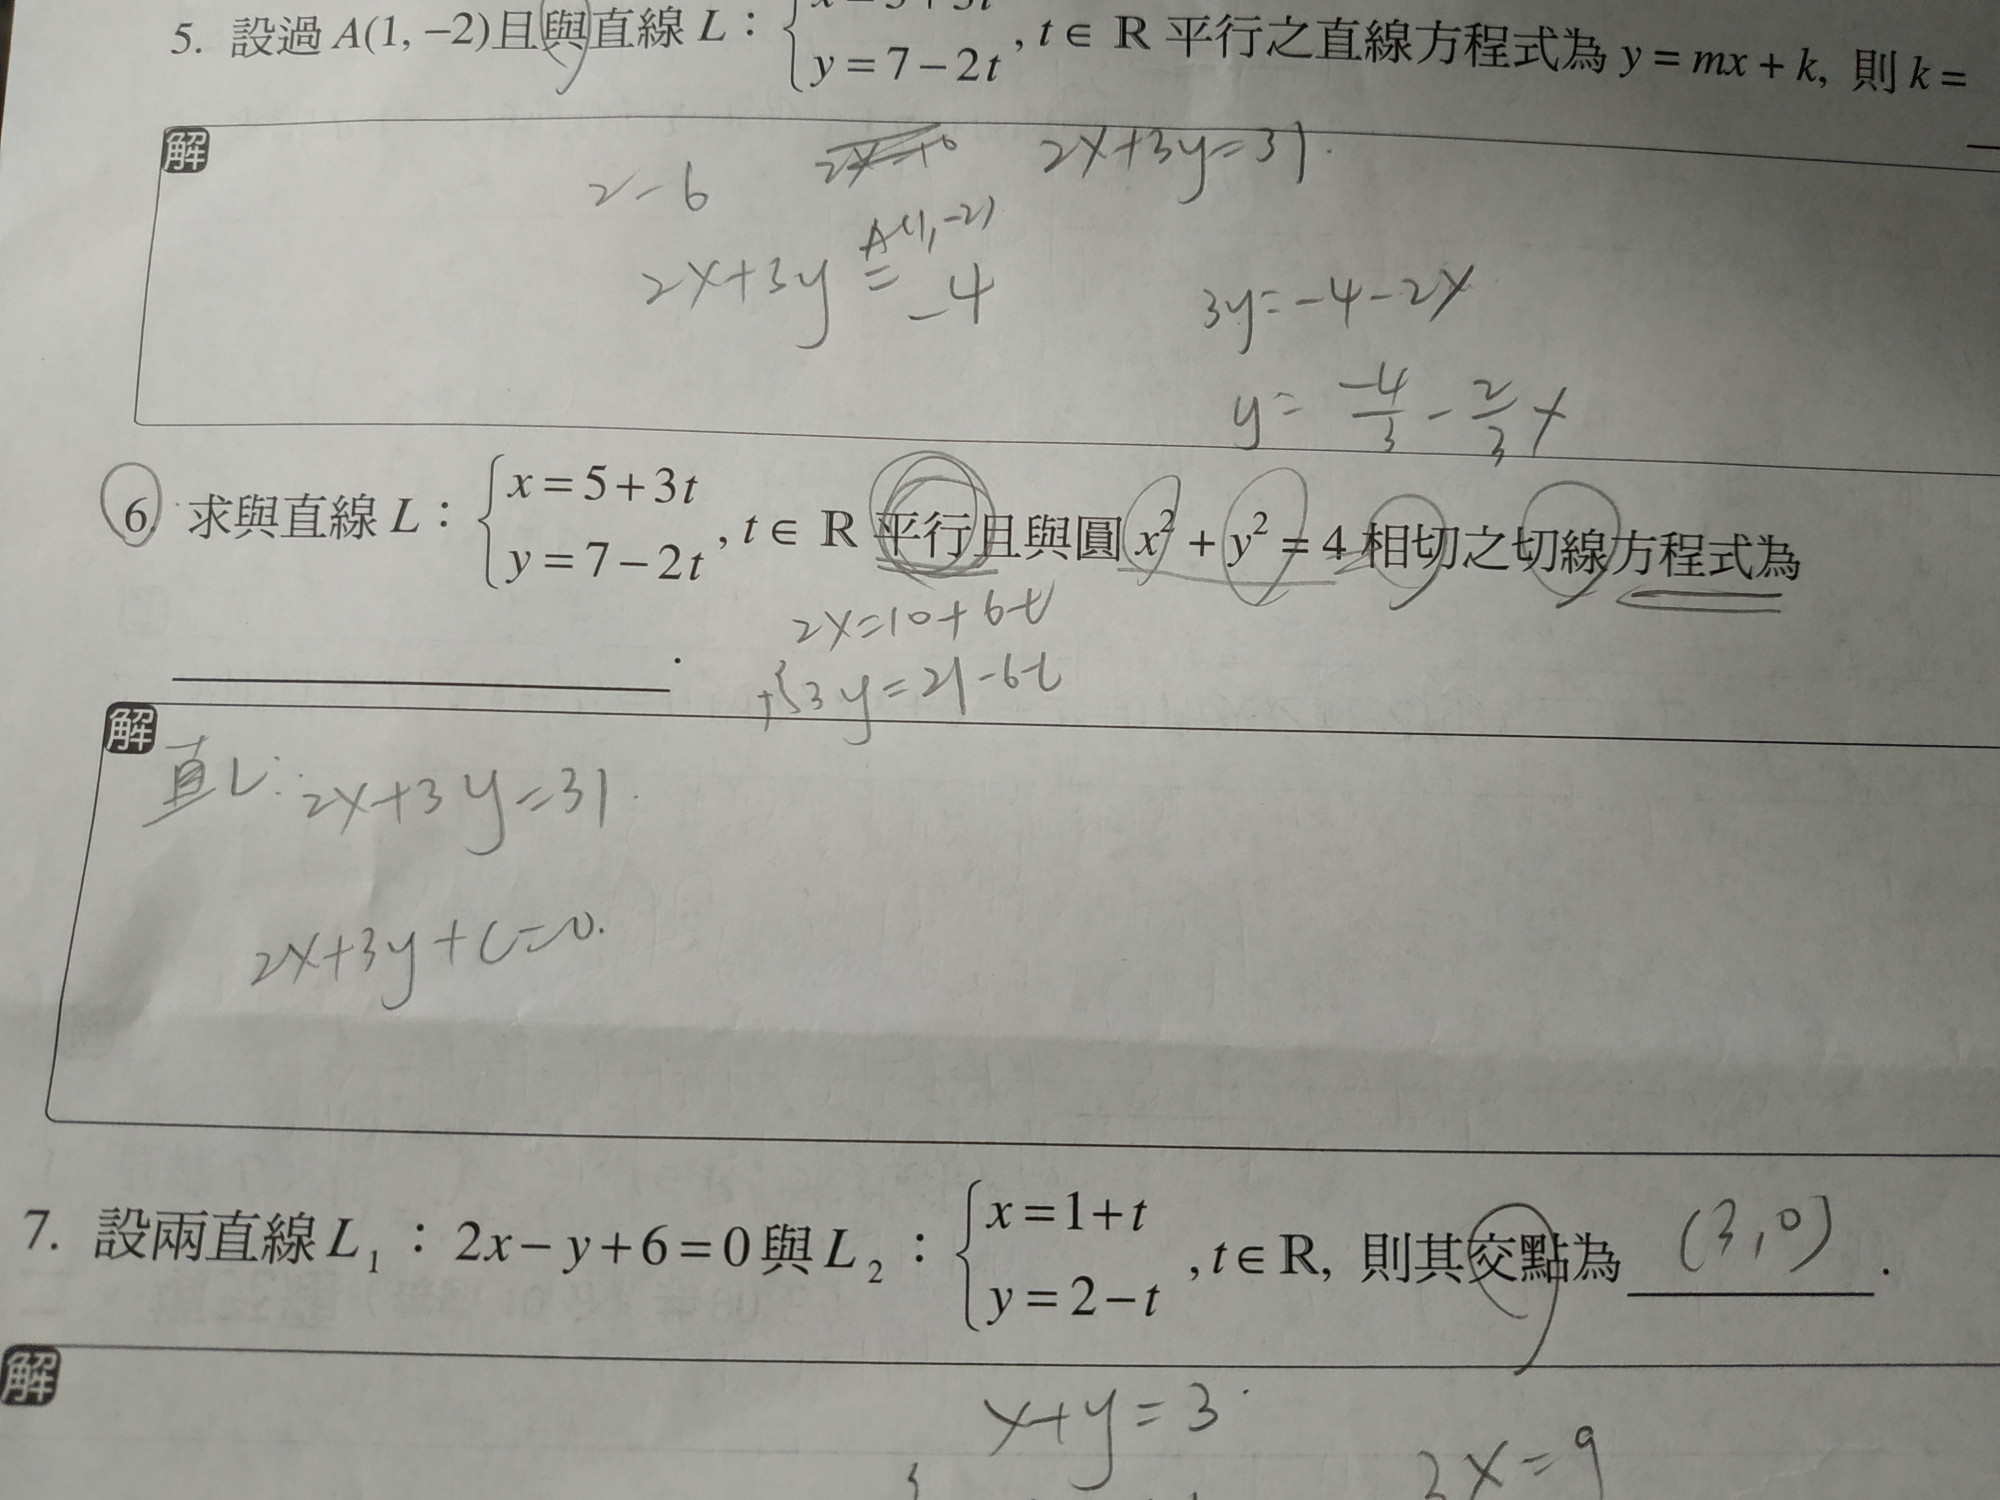 5. 設過 A(1, −2)且與直線 L：{ x = 5 + 3t
y = 7 − 2t , t ∈ R 平行之直線方程式為 y = mx + k, 則 k =
解
2x+3y=31.
2-6
A(1,-2)
2x+3y = -4
3y=-4-2x
y= -4/3 - 2/3 x
6. 求與直線 L：{ x = 5 + 3t
y = 7 − 2t , t ∈ R 平行且與圓 x² + y² = 4 相切之切線方程式為
______.
2x=10+6t
+{3y=21-6t
解
直L: 2x+3y=31.
2x+3y+c=0.
7. 設兩直線 L₁：2x − y + 6 = 0 與 L₂：{ x = 1 + t
y = 2 − t , t ∈ R, 則其交點為 (3,0) .
解
x+y=3
3x=9